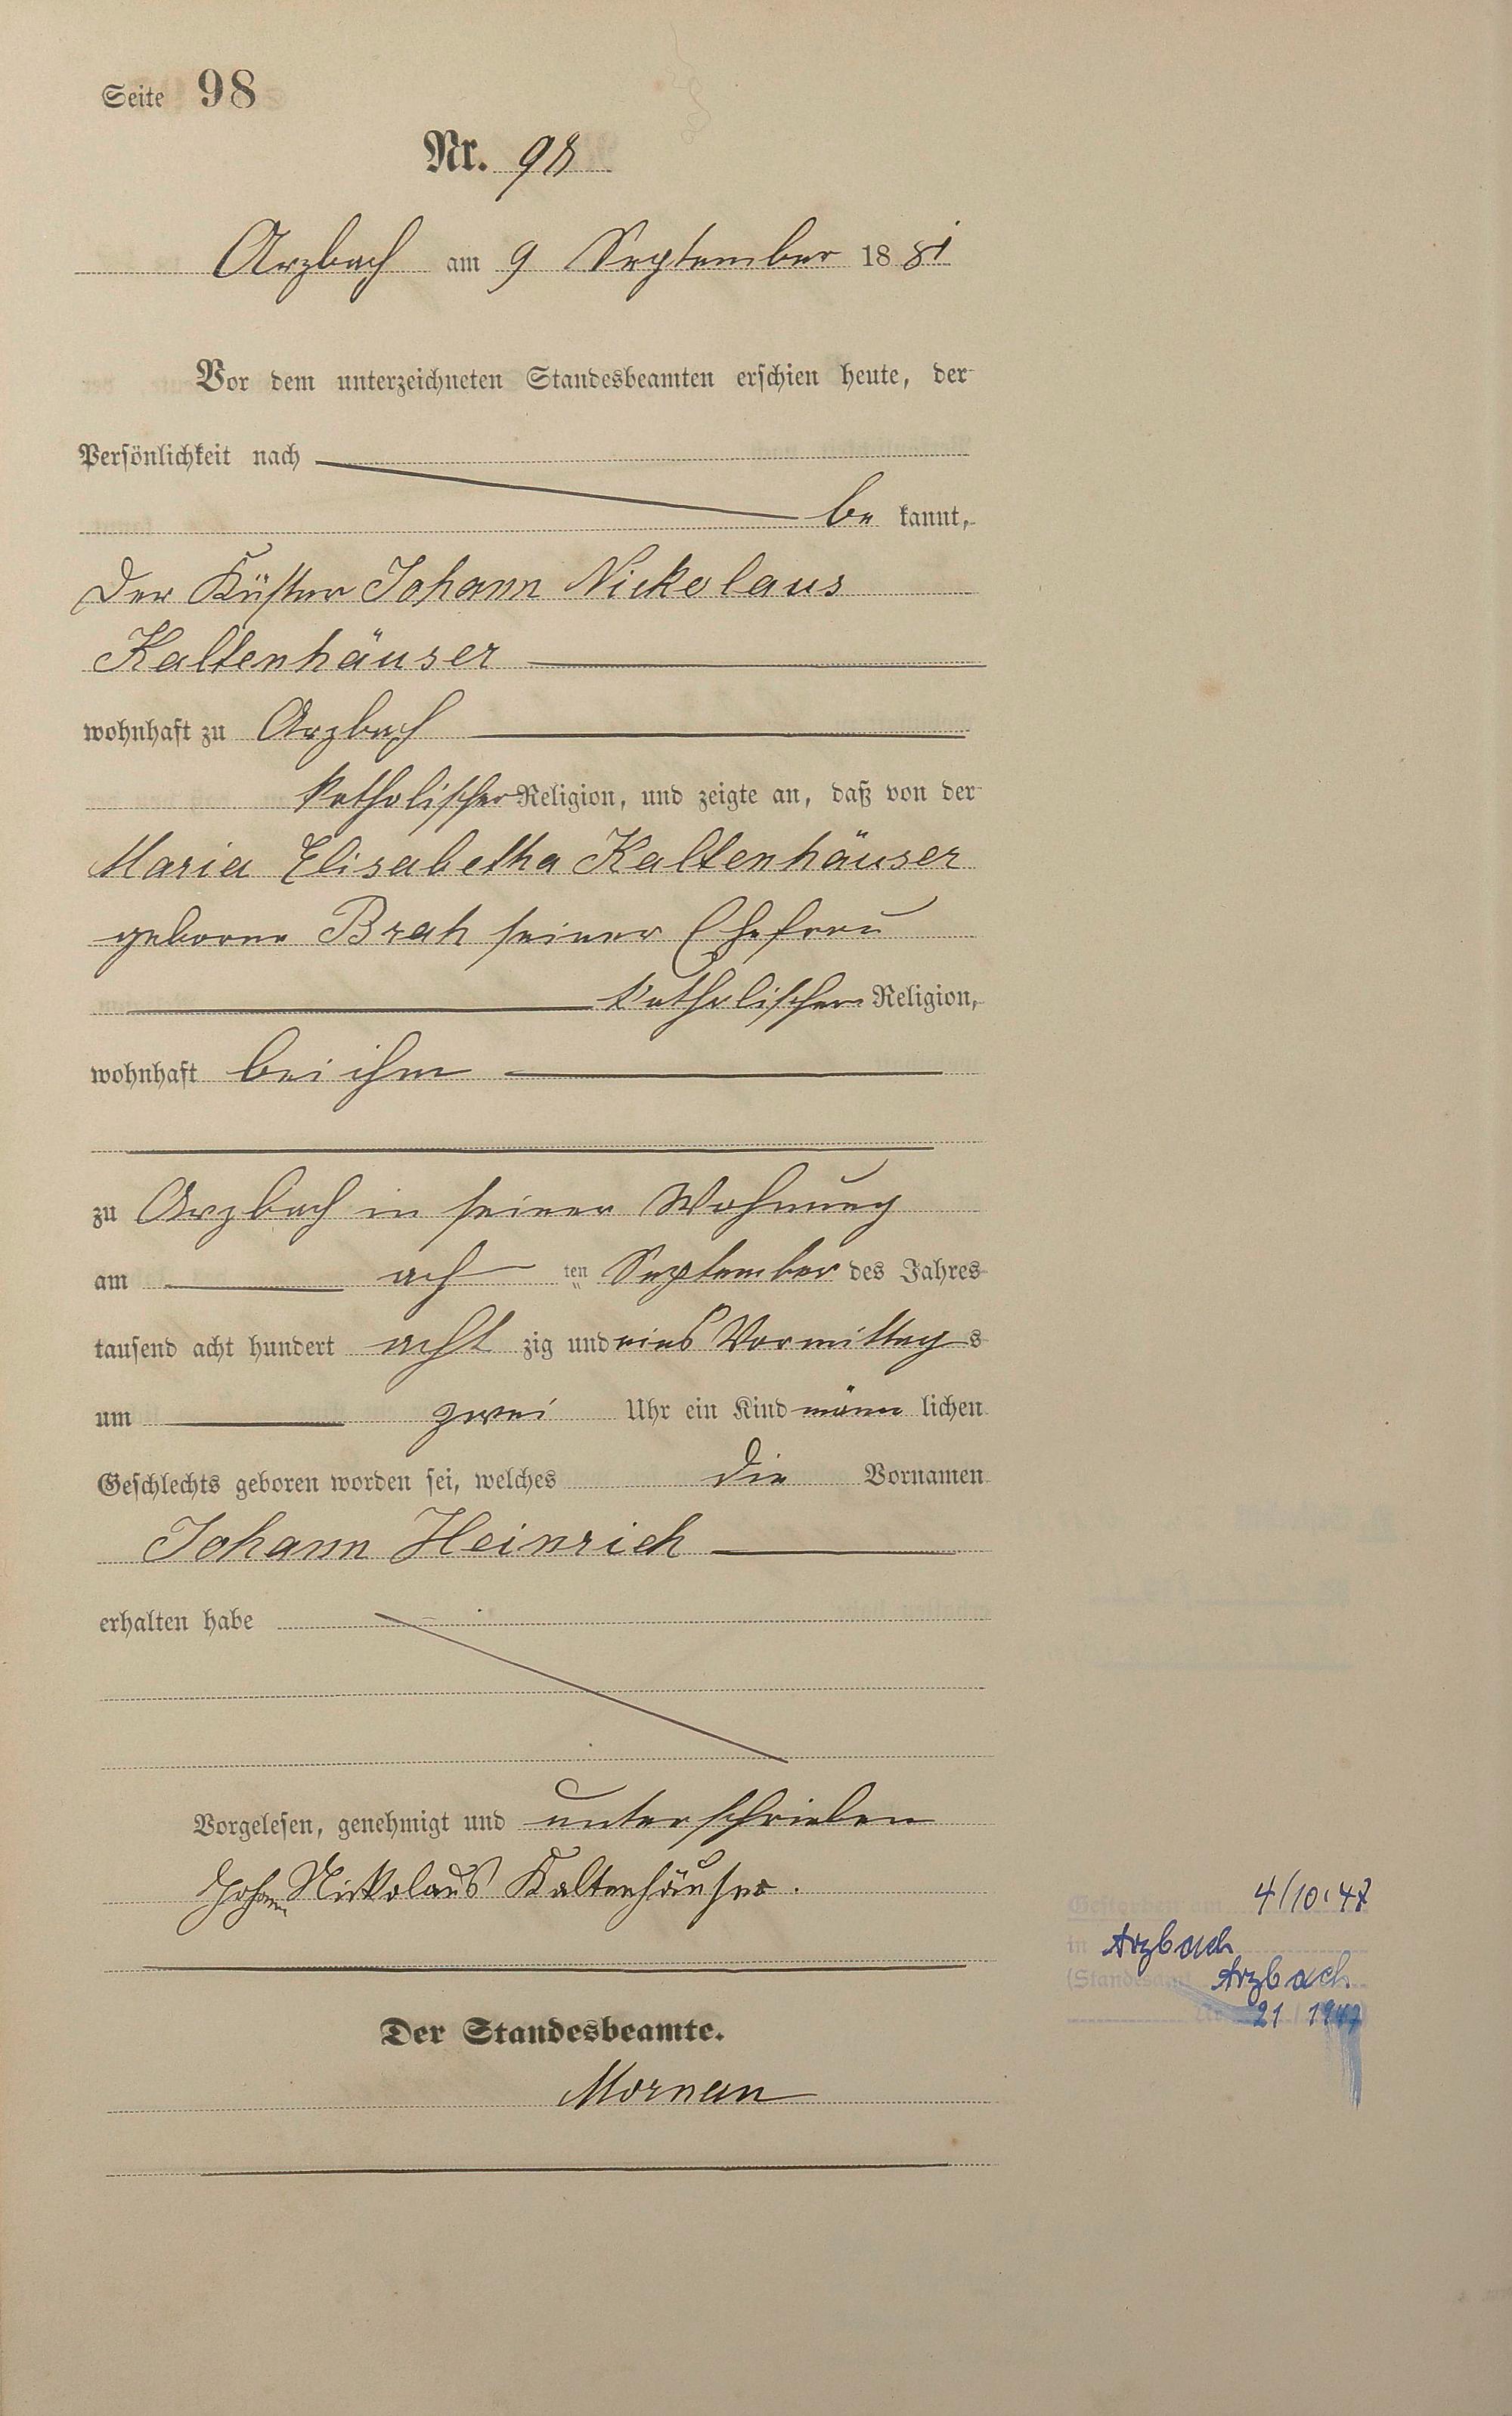 Seite 98
Nr. 98
Arzbach am 9 September 1881
Vor dem unterzeichneten Standesbeamten erschien heute, der
Persönlichkeit nach
be kannt,
Der Küster Johann Nickolaus
Kaltenhäuser
wohnhaft zu Arzbach
katholischer Religion, und zeigte an, daß von der
Maria Elisabetha Kaltenhäuser
geborne Brah seiner Ehefrau
katholischer Religion,
wohnhaft bei ihm
zu Arzbach in seiner Wohnung
am ach ten September des Jahres
tausend acht hundert acht zig und eins Vormittag s
um zwei Uhr ein Kind männ lichen
Geschlechts geboren worden sei, welches die Vornamen
Johann Heinrich
erhalten habe
Vorgelesen, genehmigt und unterschrieben
Johann Nickolaus Kaltenhäuser.
Der Standesbeamte.
Gestorben am 4/10.47
in Arzbach
(Standesamt Arzbach
Nr. 21 1947